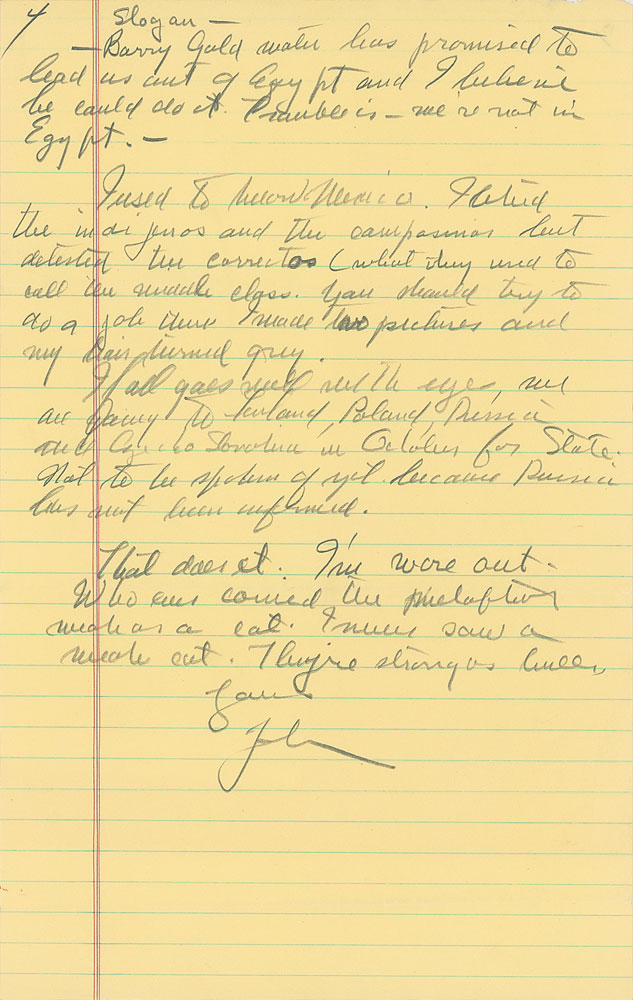 4 Slogan —
— Barry Gold water has promised to
lead us out of Egypt and I believe
he could do it. Trouble is — we're not in
Egypt. —
I used to know Mexico. I liked
the indigenos and the campasinos but
detested the correctos (what they used to
call the middle class. You should try to
do a job there I made two pictures and
my hair turned grey.
If all goes well with the eyes, we
are going to Finland, Poland, Russia
and in October for State.
Not to be spoken of yet because Russia
has not been informed.
That does it. I'm wore out.
Who ever coined the
weak as a cat. I never saw a
weak cat. They're strong as bulls,
Yours
John